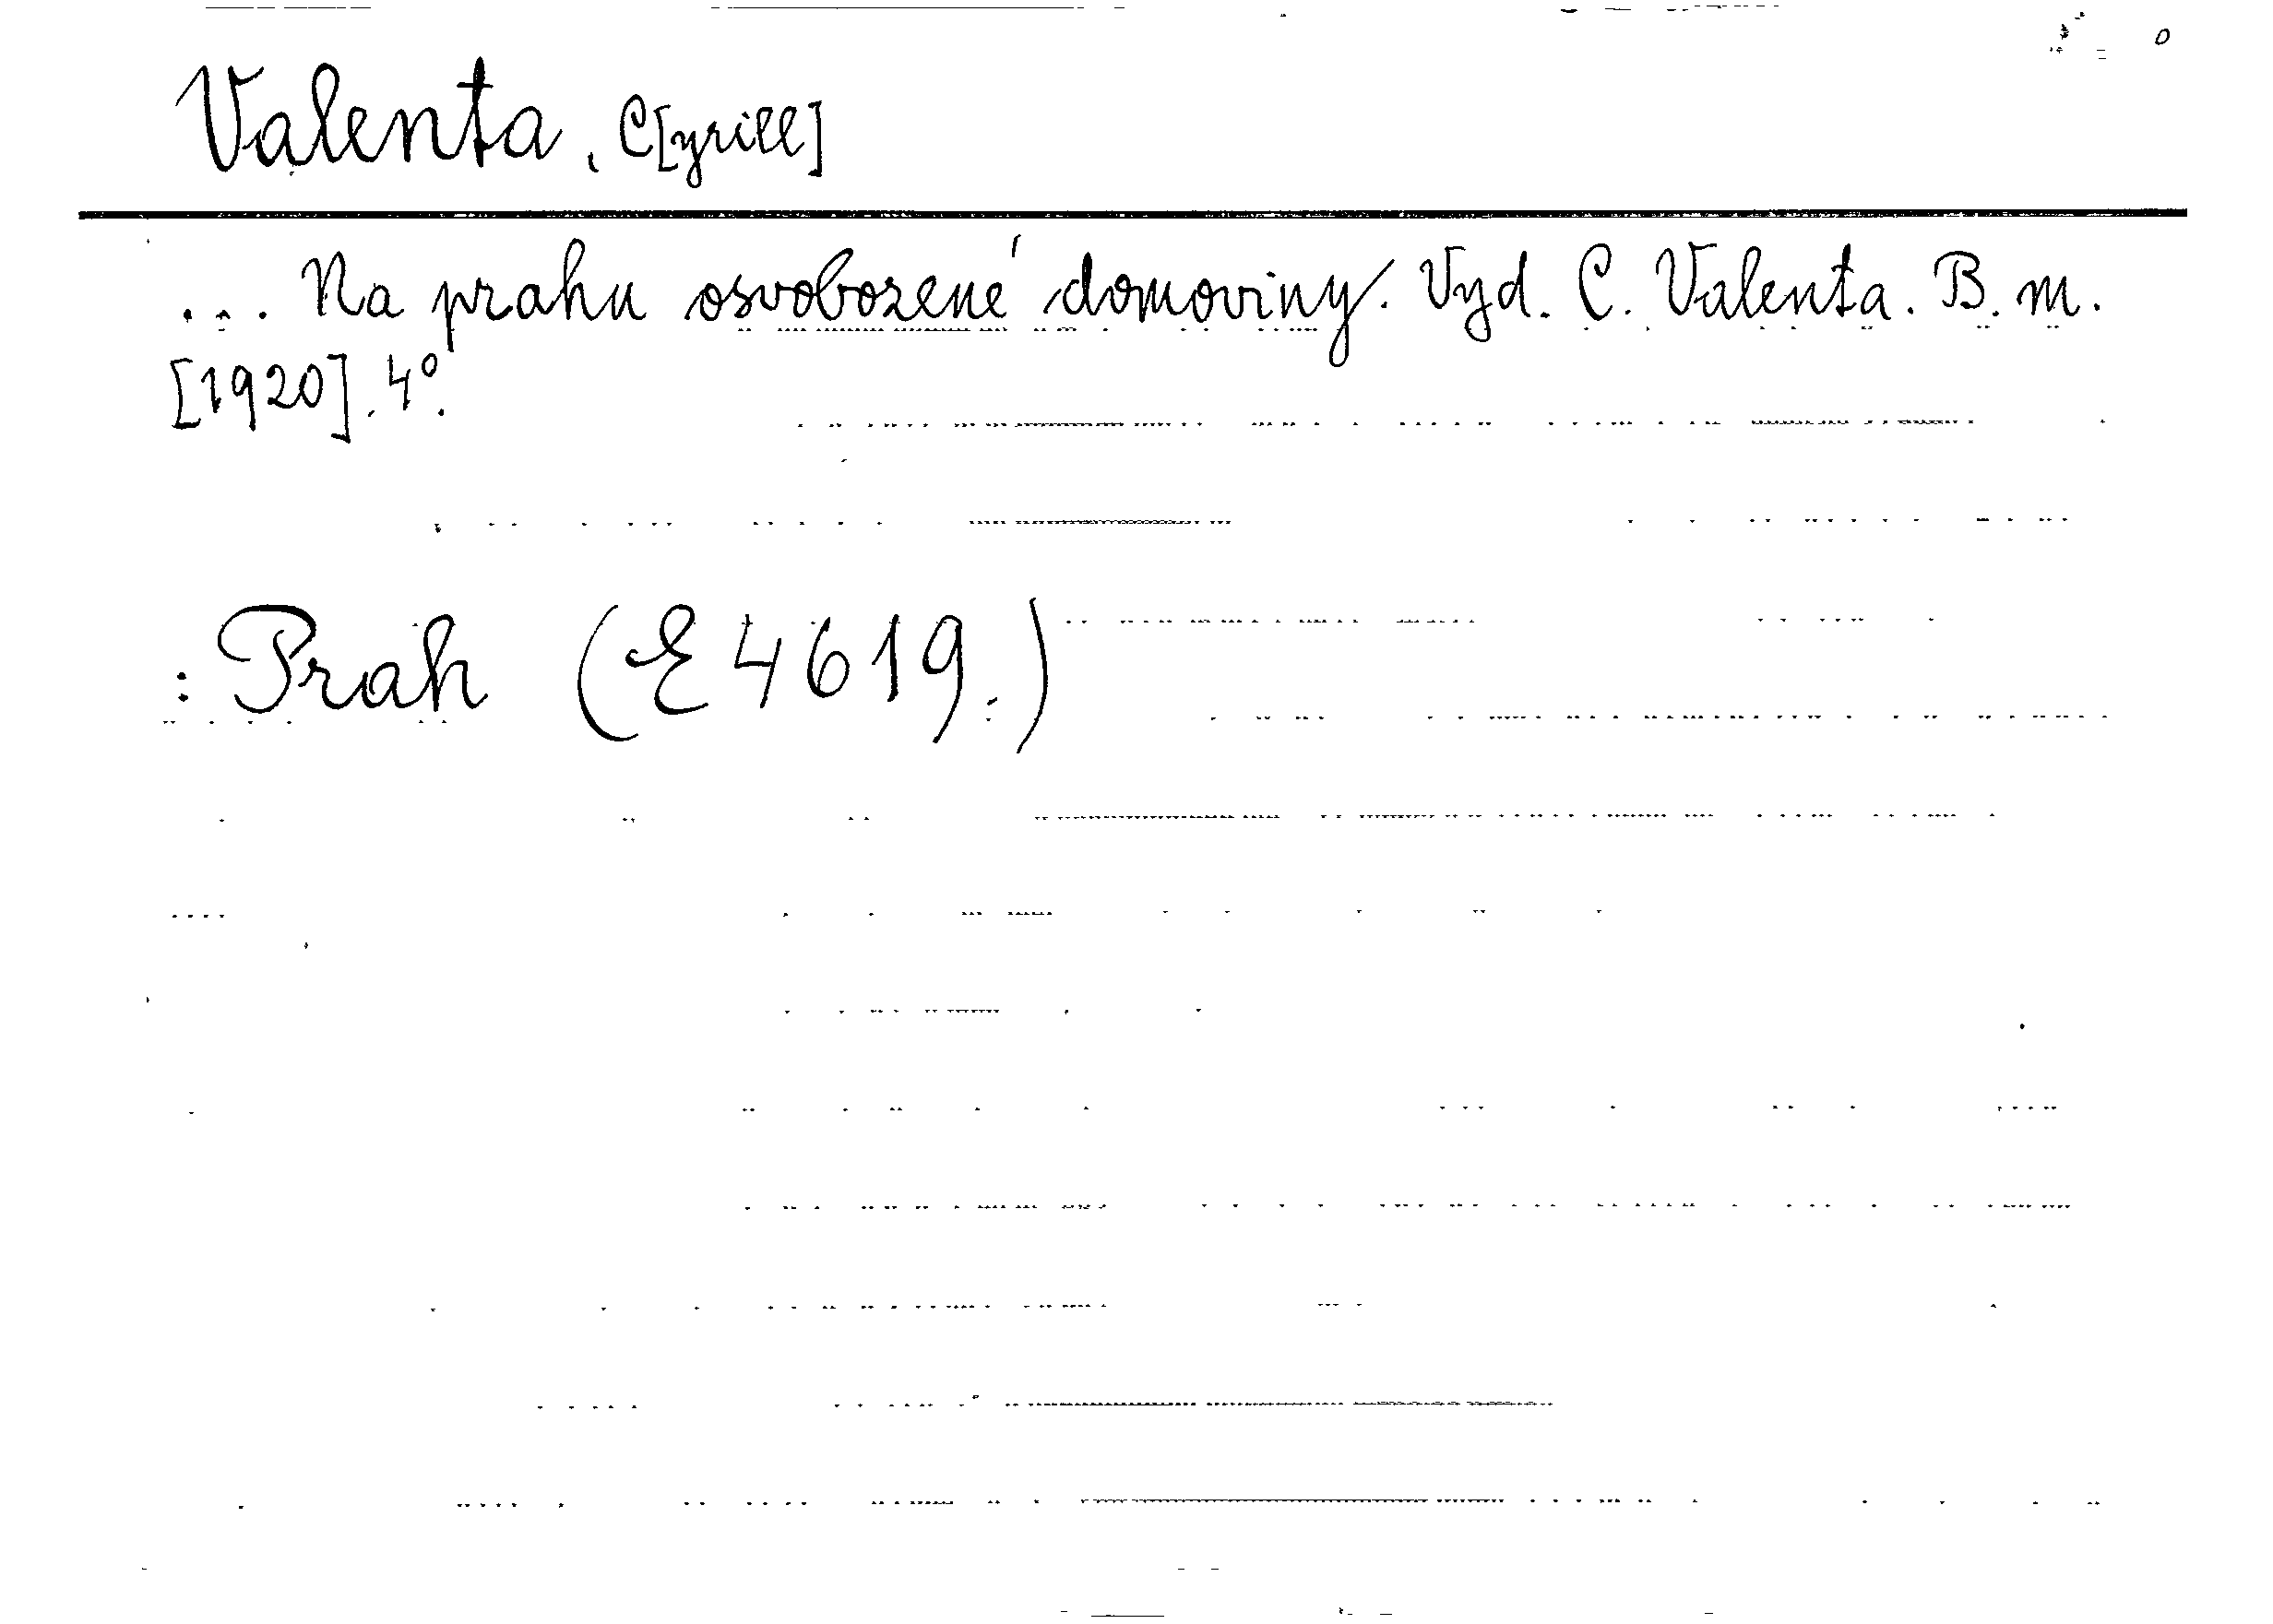 Valenta, C[yrill]
... Na prahu osvobozené domoviny. Vyd. C. Valenta. B. m.
[1920]. 4°.
: Prah (E 4619.)